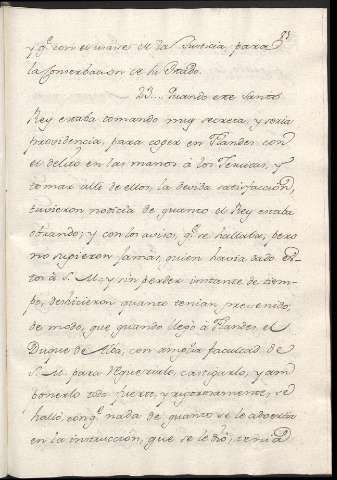 83
y q.e con el           de la Justicia, para
la conserbacion de su Estado.
23... Quando este Santo
Rey estaba tomando muy secreta, y seria
providencia, para coger en Flandes con
el delito en las manos à los Jesuitas, y
tomar alli de ellos, la devida satisfaccion,
tuvieron noticia de quanto el Rey estaba
obrando; y con los avisos, q.e se hallaba, pero
no supieron jamàs, quien havia dado es-
tos à S. M., y sin perder instante de tiem-
po, deshicieron quanto tenian prevenido;
de modo, que quando llegò à Flandes el
Duque de Alba, con amplia facultad de
S. M. para            , castigarlo, y am
ponerlo todo fuerte, y rigorosamente, se
hallò con q.e nada de quanto se le advertia
en la instruccion, que se le diò, tenia